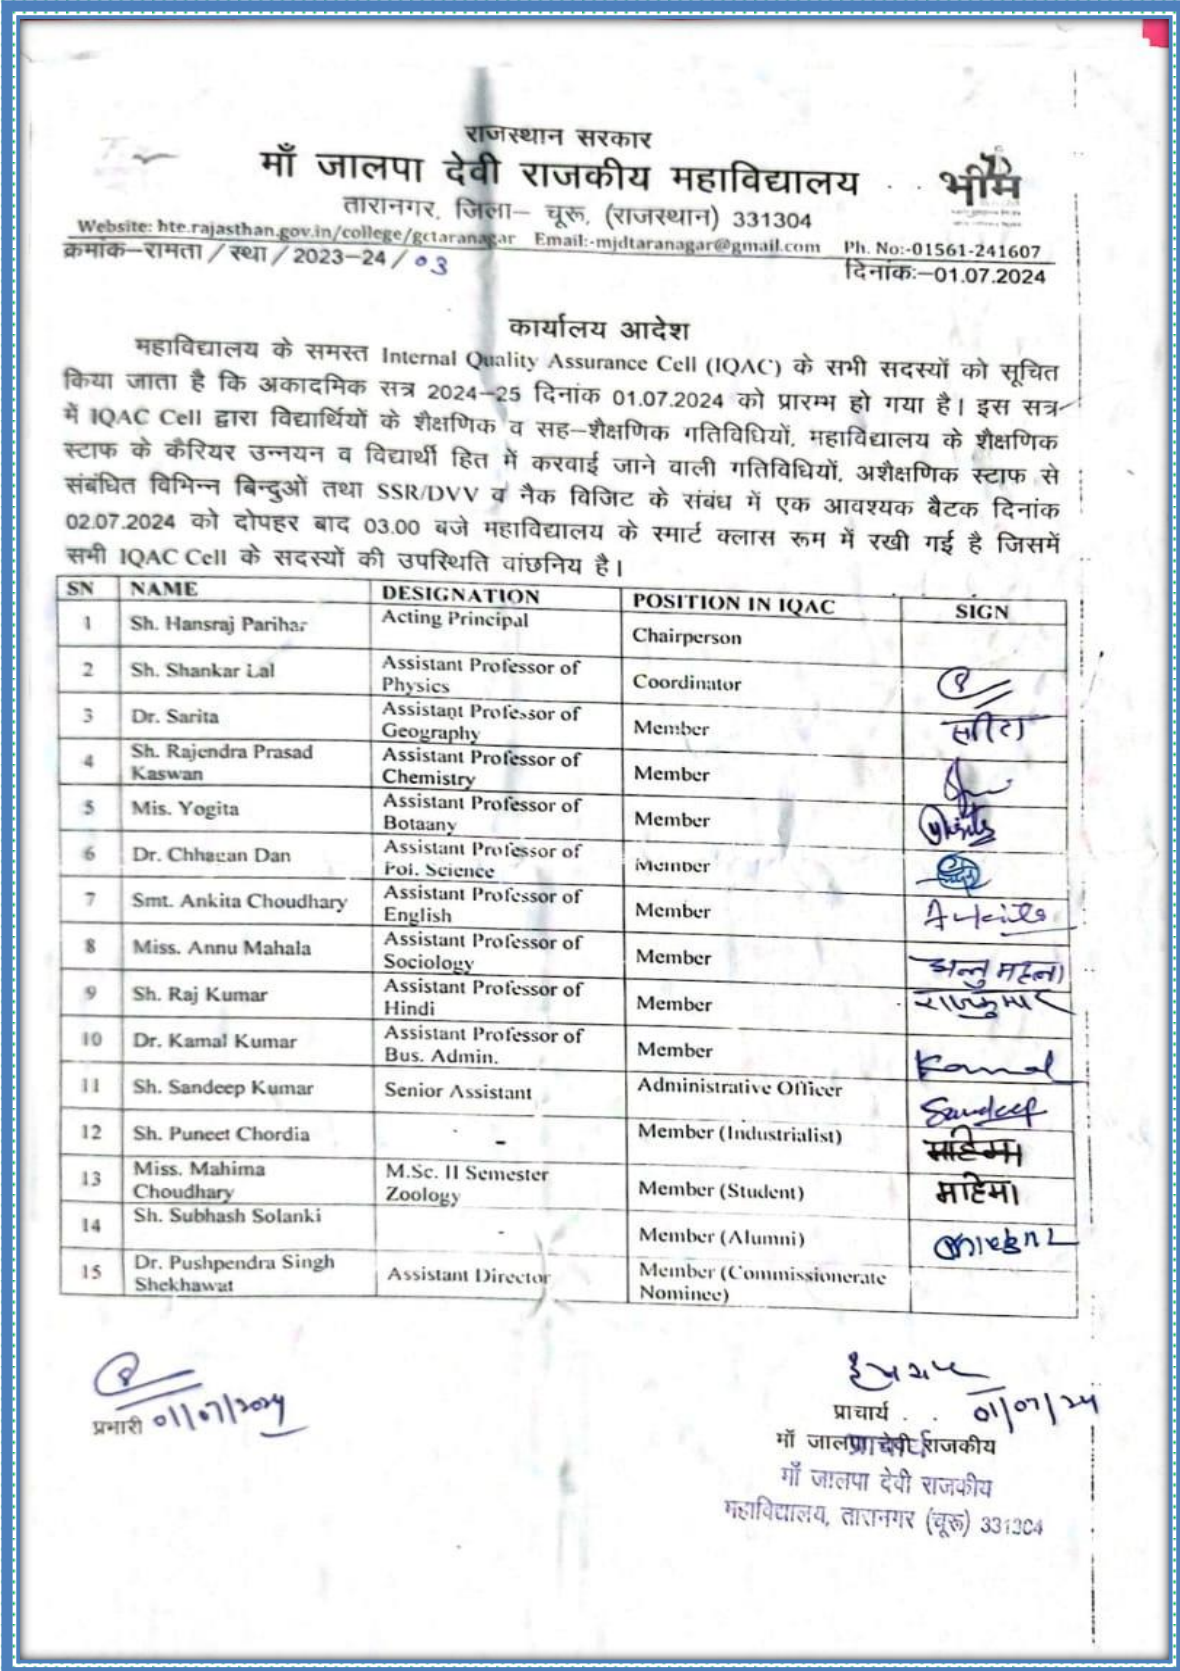 राजस्थान सरकार
माँ जालपा देवी राजकीय महाविद्यालय
भीम
तारानगर, जिला– चूरू, (राजस्थान) 331304
Website: hte.rajasthan.gov.in/college/gctaranagar Email:-mjdtaranagar@gmail.com Ph. No:-01561-241607
क्रमांक–रामता / स्था / 2023–24 / 03
दिनांक:–01.07.2024
कार्यालय आदेश
महाविद्यालय के समस्त Internal Quality Assurance Cell (IQAC) के सभी सदस्यों को सूचित
किया जाता है कि अकादमिक सत्र 2024–25 दिनांक 01.07.2024 को प्रारम्भ हो गया है। इस सत्र
में IQAC Cell द्वारा विद्यार्थियों के शैक्षणिक व सह–शैक्षणिक गतिविधियों, महाविद्यालय के शैक्षणिक
स्टाफ के कैरियर उन्नयन व विद्यार्थी हित में करवाई जाने वाली गतिविधियों, अशैक्षणिक स्टाफ से
संबंधित विभिन्न बिन्दुओं तथा SSR/DVV व नैक विजिट के संबंध में एक आवश्यक बैटक दिनांक
02.07.2024 को दोपहर बाद 03.00 बजे महाविद्यालय के स्मार्ट क्लास रूम में रखी गई है जिसमें
सभी IQAC Cell के सदस्यों की उपस्थिति वांछनिय है।
SN NAME DESIGNATION POSITION IN IQAC SIGN
1 Sh. Hansraj Parihar Acting Principal Chairperson
2 Sh. Shankar Lal Assistant Professor of Physics Coordinator
3 Dr. Sarita Assistant Professor of Geography Member सरिता
4 Sh. Rajendra Prasad Kaswan Assistant Professor of Chemistry Member
5 Mis. Yogita Assistant Professor of Botaany Member
6 Dr. Chhagan Dan Assistant Professor of Pol. Science Member
7 Smt. Ankita Choudhary Assistant Professor of English Member Ankita
8 Miss. Annu Mahala Assistant Professor of Sociology Member अन्नु महला
9 Sh. Raj Kumar Assistant Professor of Hindi Member राजकुमार
10 Dr. Kamal Kumar Assistant Professor of Bus. Admin. Member Kamal
11 Sh. Sandeep Kumar Senior Assistant Administrative Officer Sandeep
12 Sh. Puneet Chordia - Member (Industrialist) महिमा
13 Miss. Mahima Choudhary M.Sc. II Semester Zoology Member (Student) महिमा
14 Sh. Subhash Solanki - Member (Alumni)
15 Dr. Pushpendra Singh Shekhawat Assistant Director Member (Commissionerate Nominee)
प्रभारी 01/07/2024
प्राचार्य 01/07/24
माँ जालपा देवी राजकीय
प्राचार्य
माँ जालपा देवी राजकीय
महाविद्यालय, तारानगर (चूरू) 331304